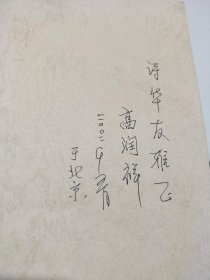 诗华友雅正
高润祥
二〇〇二年六月
于北京